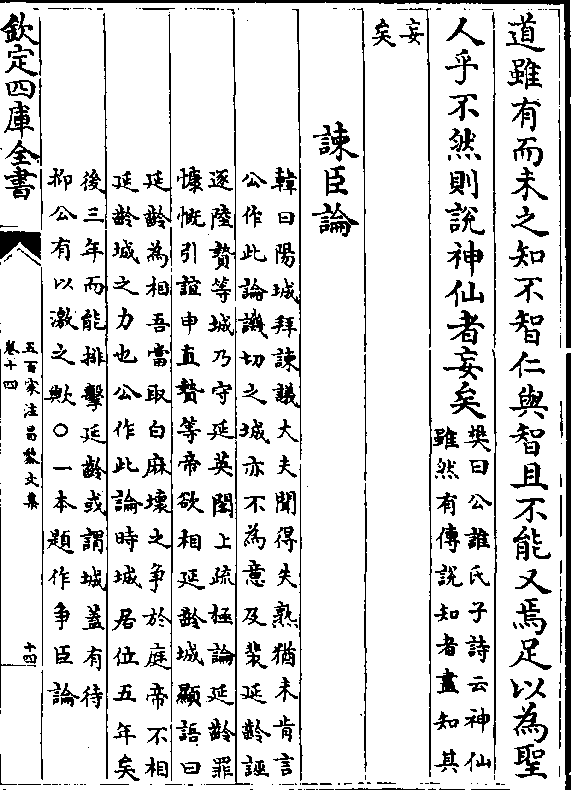 道雖有而未之知不智仁與智且不能又焉足以為聖
人乎不然則說神仙者妄矣
樊曰公誰氏子詩云神仙
雖然有傳說知者盡知其
妄
矣
諫臣論
韓曰陽城拜諫議大夫聞得失熟猶未肯言
公作此論譏切之城亦不為意及裴延齡誣
逐陸贄等城乃守延英閣上疏極論延齡罪
慷慨引誼申直贄等帝欲相延齡城顯語曰
延齡為相吾當取白麻壞之爭於庭帝不相
延齡城之力也公作此論時城居位五年矣
後三年而能排擊延齡或謂城蓋有待
抑公有以激之歟○一本題作爭臣論
欽定四庫全書
五百家注昌黎文集
卷十四
十四